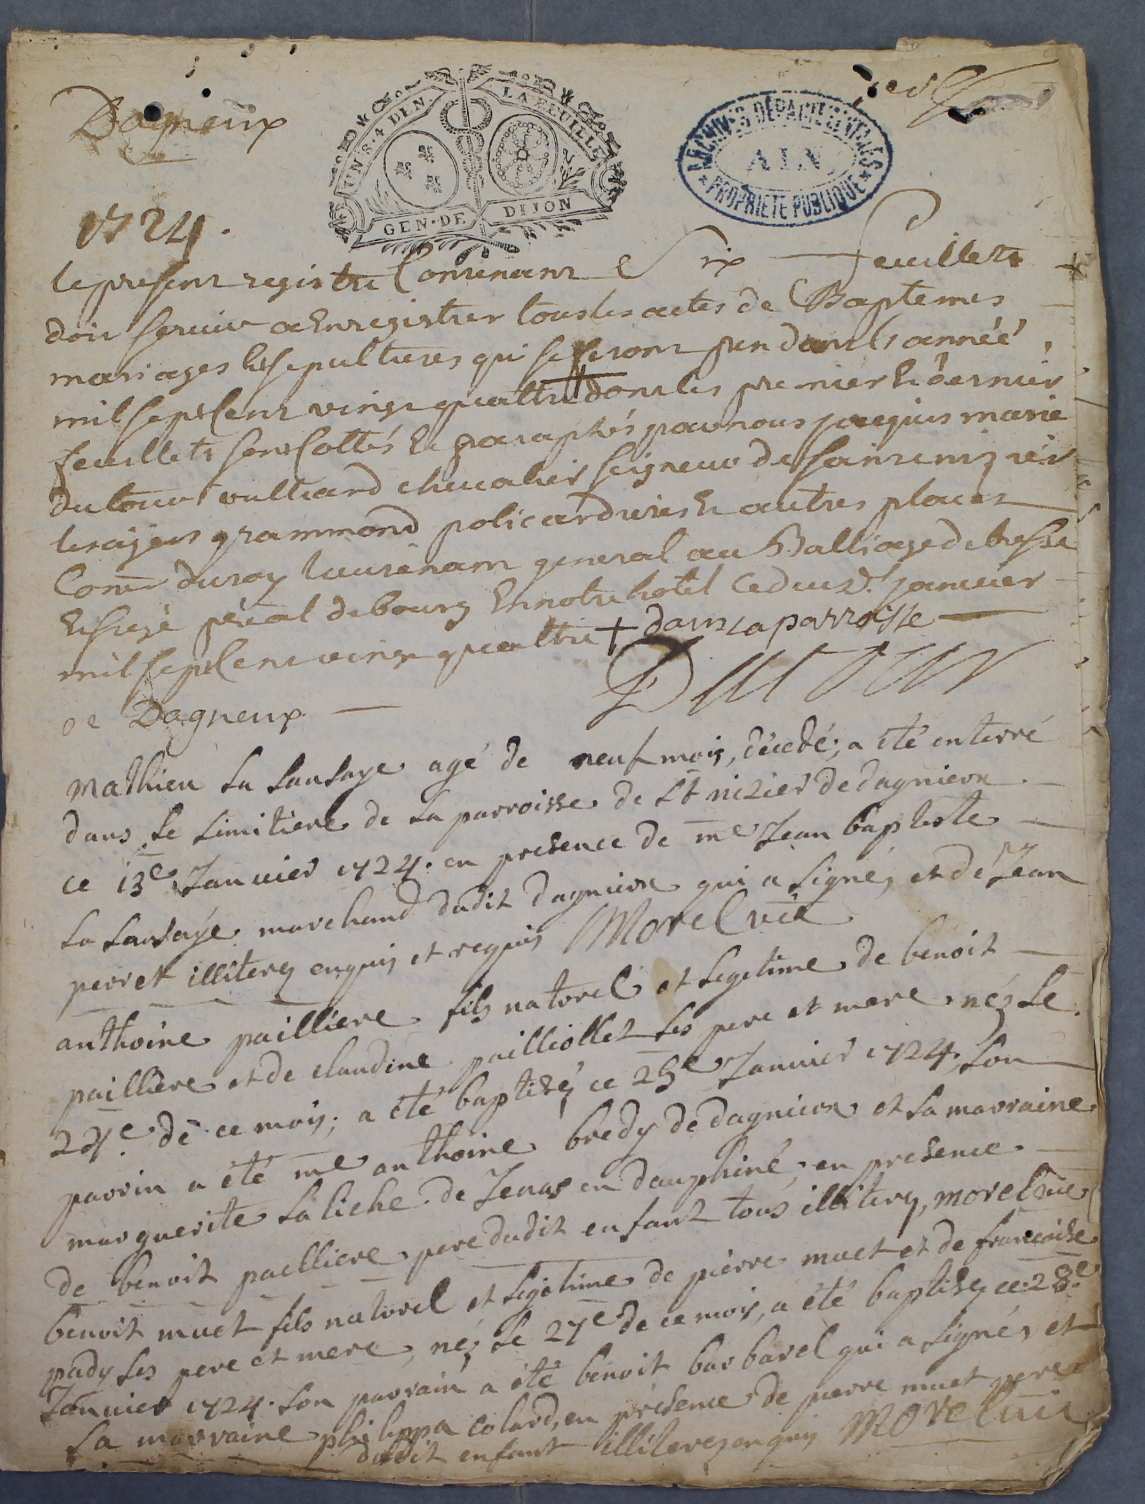 Dagneux
UN S. 4 DEN. LA FEUILLE
GEN. DE DIJON
ARCHIVES DÉPARTEMENTALES
AIN
PROPRIÉTÉ PUBLIQUE
1724.
le present registre Contenant Six feuillets
doit servir a Enregistrer tous les actes de Baptemes
mariages & sepultures qui se feront pendant l'année
mil sept Cent vingt quattre + dont les premier & dernier
feuillets sont Cottés & paraphés par nous jacques marie
dutour vulliard chevalier seigneur de saint nizier
grammond policard & autres places
Conr du roy lieutenant general au Balliage de bresse
& siege pnal de bourg En notre hotel ce deux janvier
mil sept Cent vingt quattre + dans la parroisse
de Dagneux
Dutour
mathieu la sausaye agé de neuf mois, décedé, a été enterré
dans le simitiere de la parroisse de st nizier de dagnieux
ce 13e Janvier 1724. en presence de me Jean baptiste
la sausaye marchand dudit dagnieux qui a signé, et de Jean
perret illiterez enquis et requis Morel vic
anthoine pailliere fils naturel et legitime de benoit
pailliere et de claudine pailliollet ses pere et mere, néz le
de ce mois; a été baptisé, ce 25e Janvier 1724. son
parrin a été me anthoine bredy de dagnieux et sa marraine
marguerite laliche de Jenas en dauphiné, en presence
de benoit pailliere pere dudit enfant tous illiterez, morel vic
benoit muet fils naturel et legitime de pierre muet et de francoise
pady ses pere et mere, néz le 27e de ce mois, a été baptisez ce 28e
Janvier 1724. son parrain a été benoit barbarel qui a signéz et
sa marraine philippa colard, en présence de pierre muet pere
dudit enfant illiterez enquis Morel vic